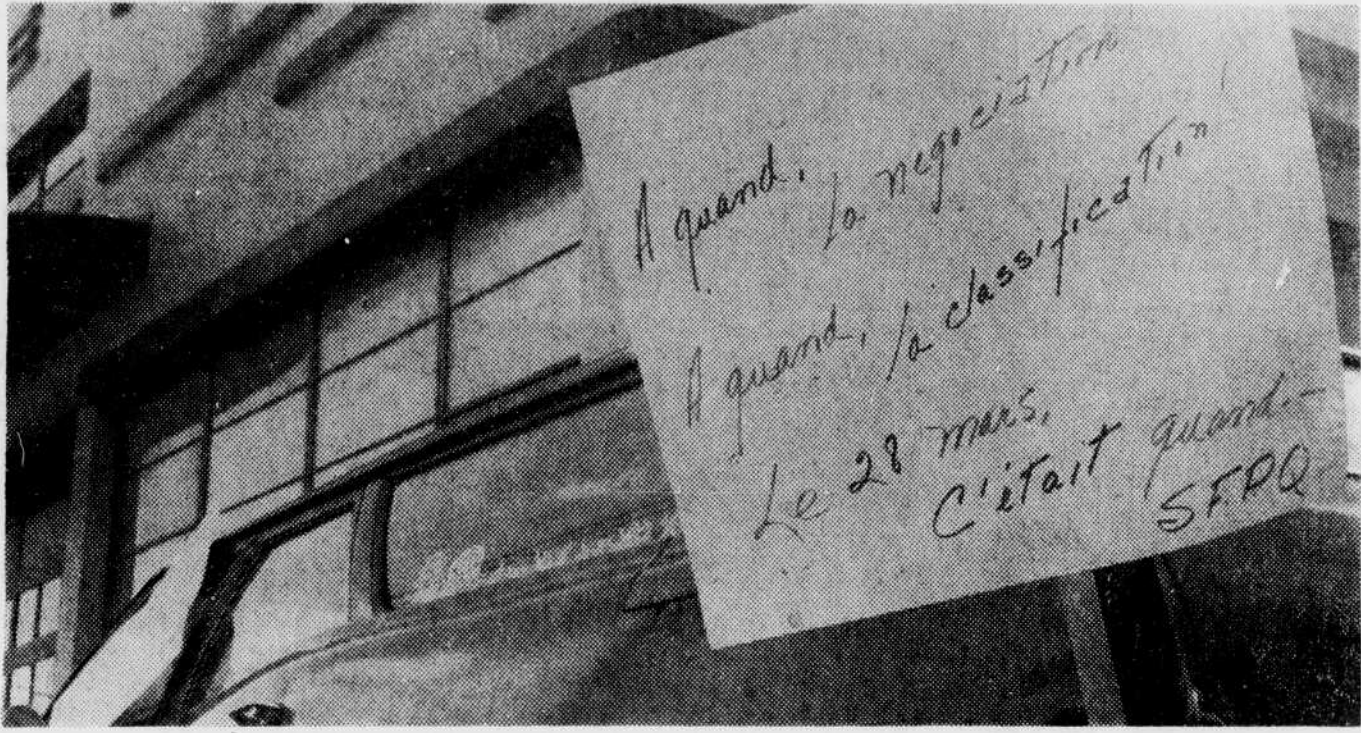 A quand,
la negociation
A quand, la classification!
Le 28 mars,
C'était quand.-
SFPQ